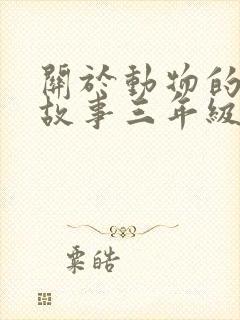 關於動物的
故事三年級
粟皓